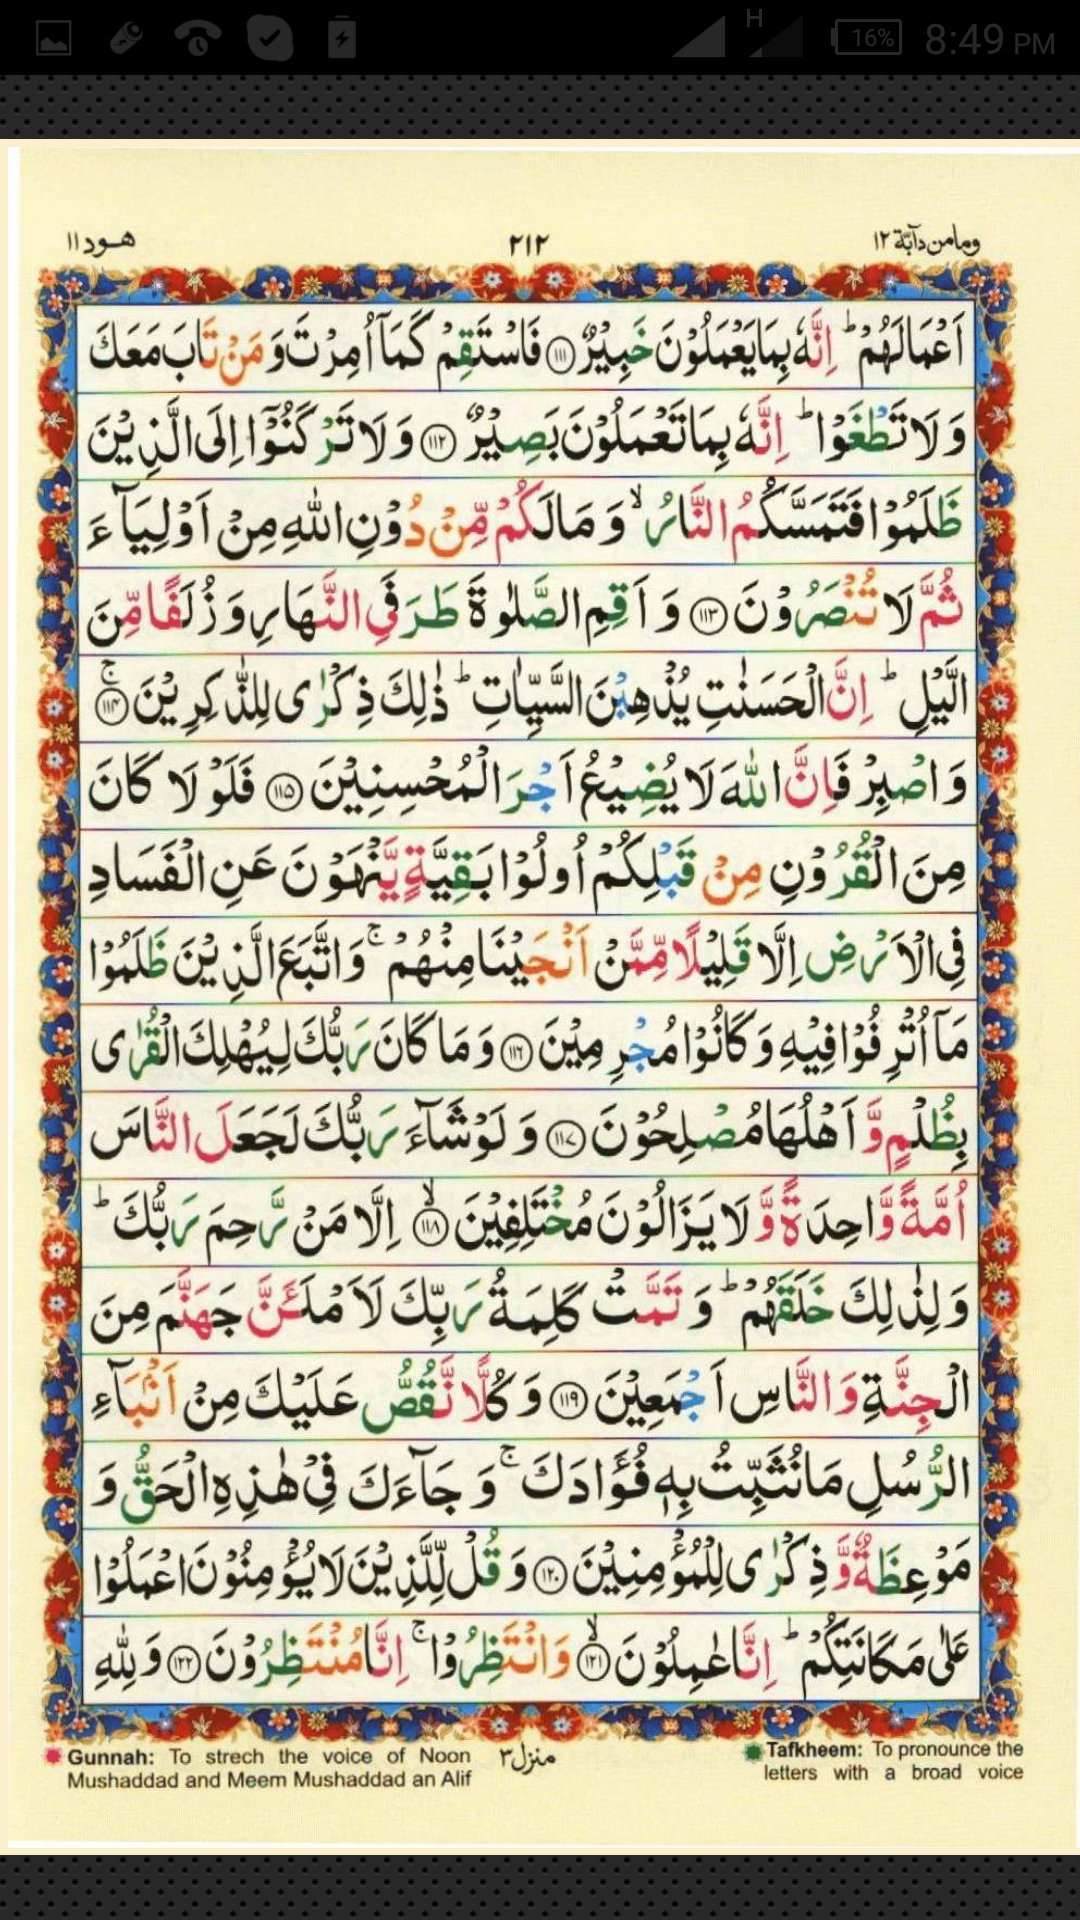 H 16% 8:49 PM
ومامن دآبّة ١٢ ٢١٢ هود ١١
اَعْمَالَهُمْ ؕ اِنَّهٗ بِمَا يَعْمَلُوْنَ خَبِيْرٌ ﴿۱۱۱﴾ فَاسْتَقِمْ كَمَاۤ اُمِرْتَ وَ مَنْ تَابَ مَعَكَ
وَ لَا تَطْغَوْا ؕ اِنَّهٗ بِمَا تَعْمَلُوْنَ بَصِيْرٌ ﴿۱۱۲﴾ وَ لَا تَرْكَنُوْۤا اِلَى الَّذِيْنَ
ظَلَمُوْا فَتَمَسَّكُمُ النَّارُ ۙ وَ مَا لَكُمْ مِّنْ دُوْنِ اللّٰهِ مِنْ اَوْلِيَآءَ
ثُمَّ لَا تُنْصَرُوْنَ ﴿۱۱۳﴾ وَ اَقِمِ الصَّلٰوةَ طَرَفَيِ النَّهَارِ وَ زُلَفًا مِّنَ
الَّيْلِ ؕ اِنَّ الْحَسَنٰتِ يُذْهِبْنَ السَّيِّاٰتِ ؕ ذٰلِكَ ذِكْرٰى لِلذّٰكِرِيْنَ ﴿۱۱۴﴾ۚ
وَ اصْبِرْ فَاِنَّ اللّٰهَ لَا يُضِيْعُ اَجْرَ الْمُحْسِنِيْنَ ﴿۱۱۵﴾ فَلَوْ لَا كَانَ
مِنَ الْقُرُوْنِ مِنْ قَبْلِكُمْ اُولُوْا بَقِيَّةٍ يَّنْهَوْنَ عَنِ الْفَسَادِ
فِى الْاَرْضِ اِلَّا قَلِيْلًا مِّمَّنْ اَنْجَيْنَا مِنْهُمْ ۚ وَ اتَّبَعَ الَّذِيْنَ ظَلَمُوْا
مَاۤ اُتْرِفُوْا فِيْهِ وَ كَانُوْا مُجْرِمِيْنَ ﴿۱۱۶﴾ وَ مَا كَانَ رَبُّكَ لِيُهْلِكَ الْقُرٰى
بِظُلْمٍ وَّ اَهْلُهَا مُصْلِحُوْنَ ﴿۱۱۷﴾ وَ لَوْ شَآءَ رَبُّكَ لَجَعَلَ النَّاسَ
اُمَّةً وَّاحِدَةً وَّ لَا يَزَالُوْنَ مُخْتَلِفِيْنَ ﴿۱۱۸﴾ۙ اِلَّا مَنْ رَّحِمَ رَبُّكَ ؕ
وَ لِذٰلِكَ خَلَقَهُمْ ؕ وَ تَمَّتْ كَلِمَةُ رَبِّكَ لَاَمْلَـَٔنَّ جَهَنَّمَ مِنَ
الْجِنَّةِ وَ النَّاسِ اَجْمَعِيْنَ ﴿۱۱۹﴾ وَ كُلًّا نَّقُصُّ عَلَيْكَ مِنْ اَنْۢبَآءِ
الرُّسُلِ مَا نُثَبِّتُ بِهٖ فُؤَادَكَ ۚ وَ جَآءَكَ فِيْ هٰذِهِ الْحَقُّ وَ
مَوْعِظَةٌ وَّ ذِكْرٰى لِلْمُؤْمِنِيْنَ ﴿۱۲۰﴾ وَ قُلْ لِّلَّذِيْنَ لَا يُؤْمِنُوْنَ اعْمَلُوْا
عَلٰى مَكَانَتِكُمْ ؕ اِنَّا عٰمِلُوْنَ ﴿۱۲۱﴾ۙ وَ انْتَظِرُوْا ۚ اِنَّا مُنْتَظِرُوْنَ ﴿۱۲۲﴾ وَ لِلّٰهِ
Gunnah: To strech the voice of Noon منزل ٣ Tafkheem: To pronounce the
Mushaddad and Meem Mushaddad an Alif letters with a broad voice